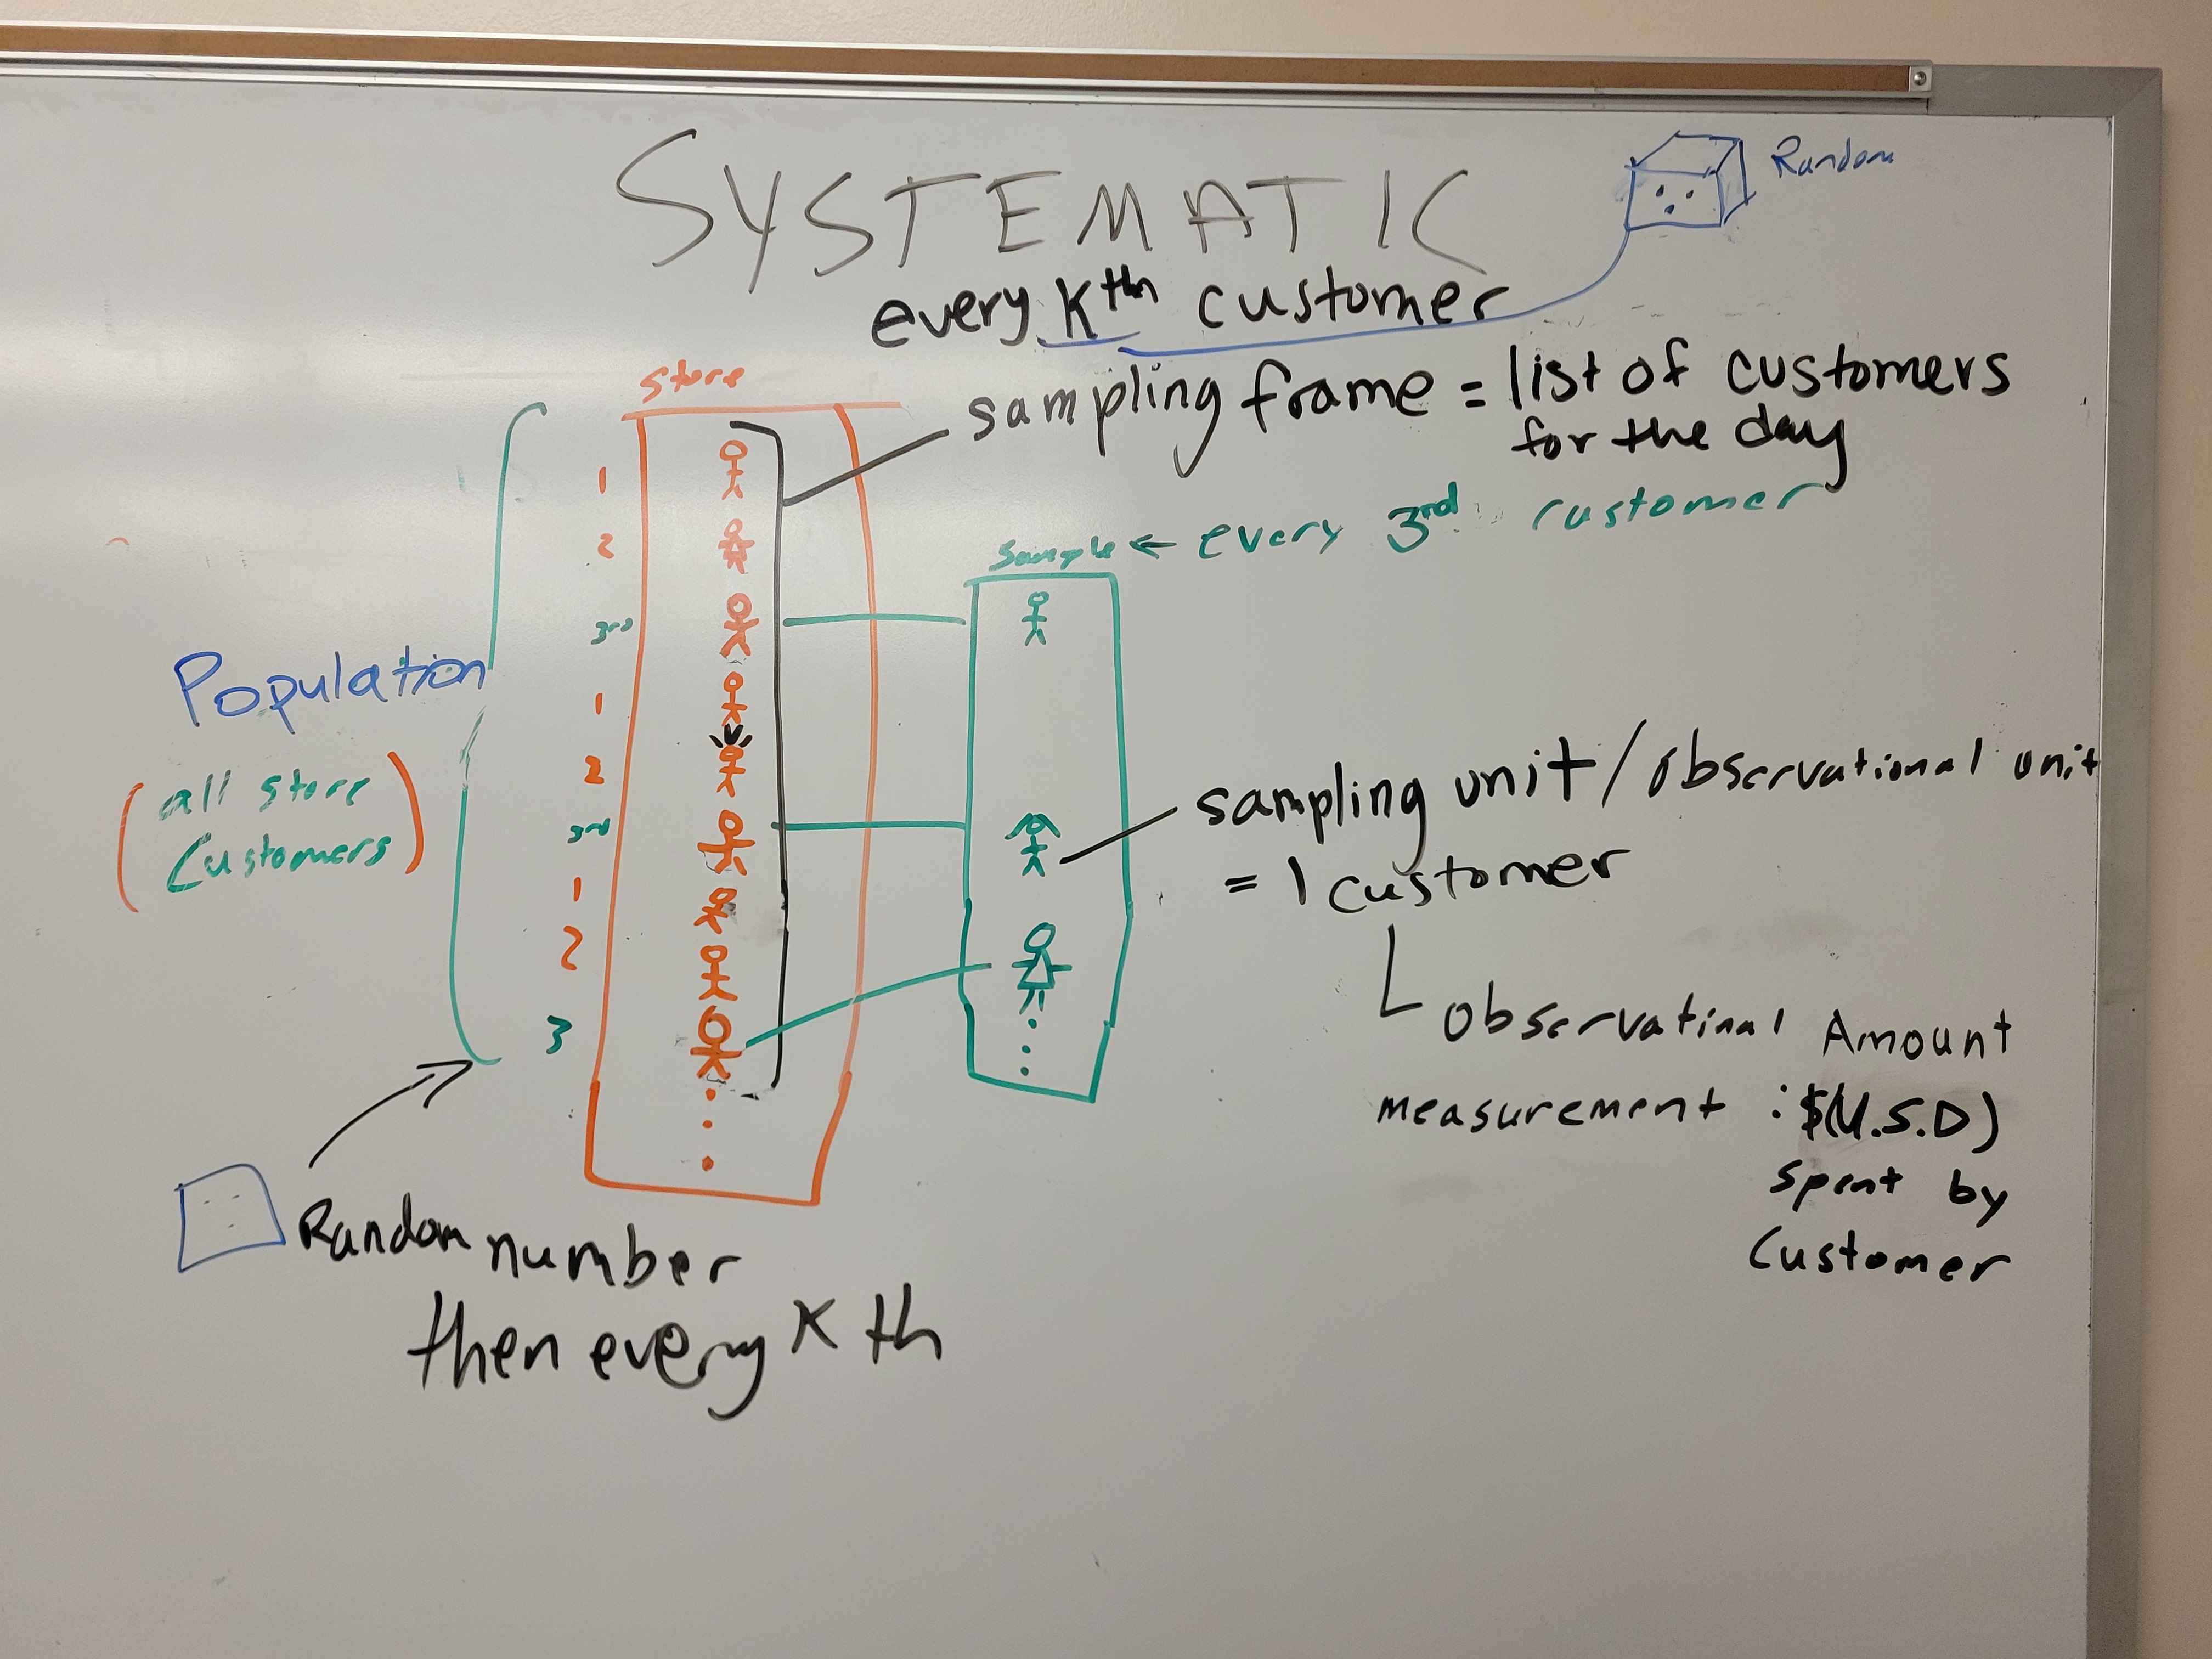 SYSTEMATIC
Random
every Kth customer
store
sampling frame = list of customers
for the day
1
2
3rd
1
2
3rd
1
2
3
sample ← every 3rd customer
Population
(all store
Customers)
sampling unit/observational unit
= 1 customer
Observatinal Amount
measurement : $(U.S.D)
spent by
Customer
Random number
then every K th